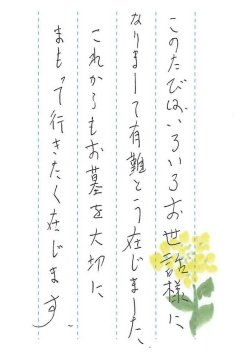 このたびはいろいろお世話様に
なりまして有難とう在じました、
これからもお墓を大切に
まもって行きたく在じます。